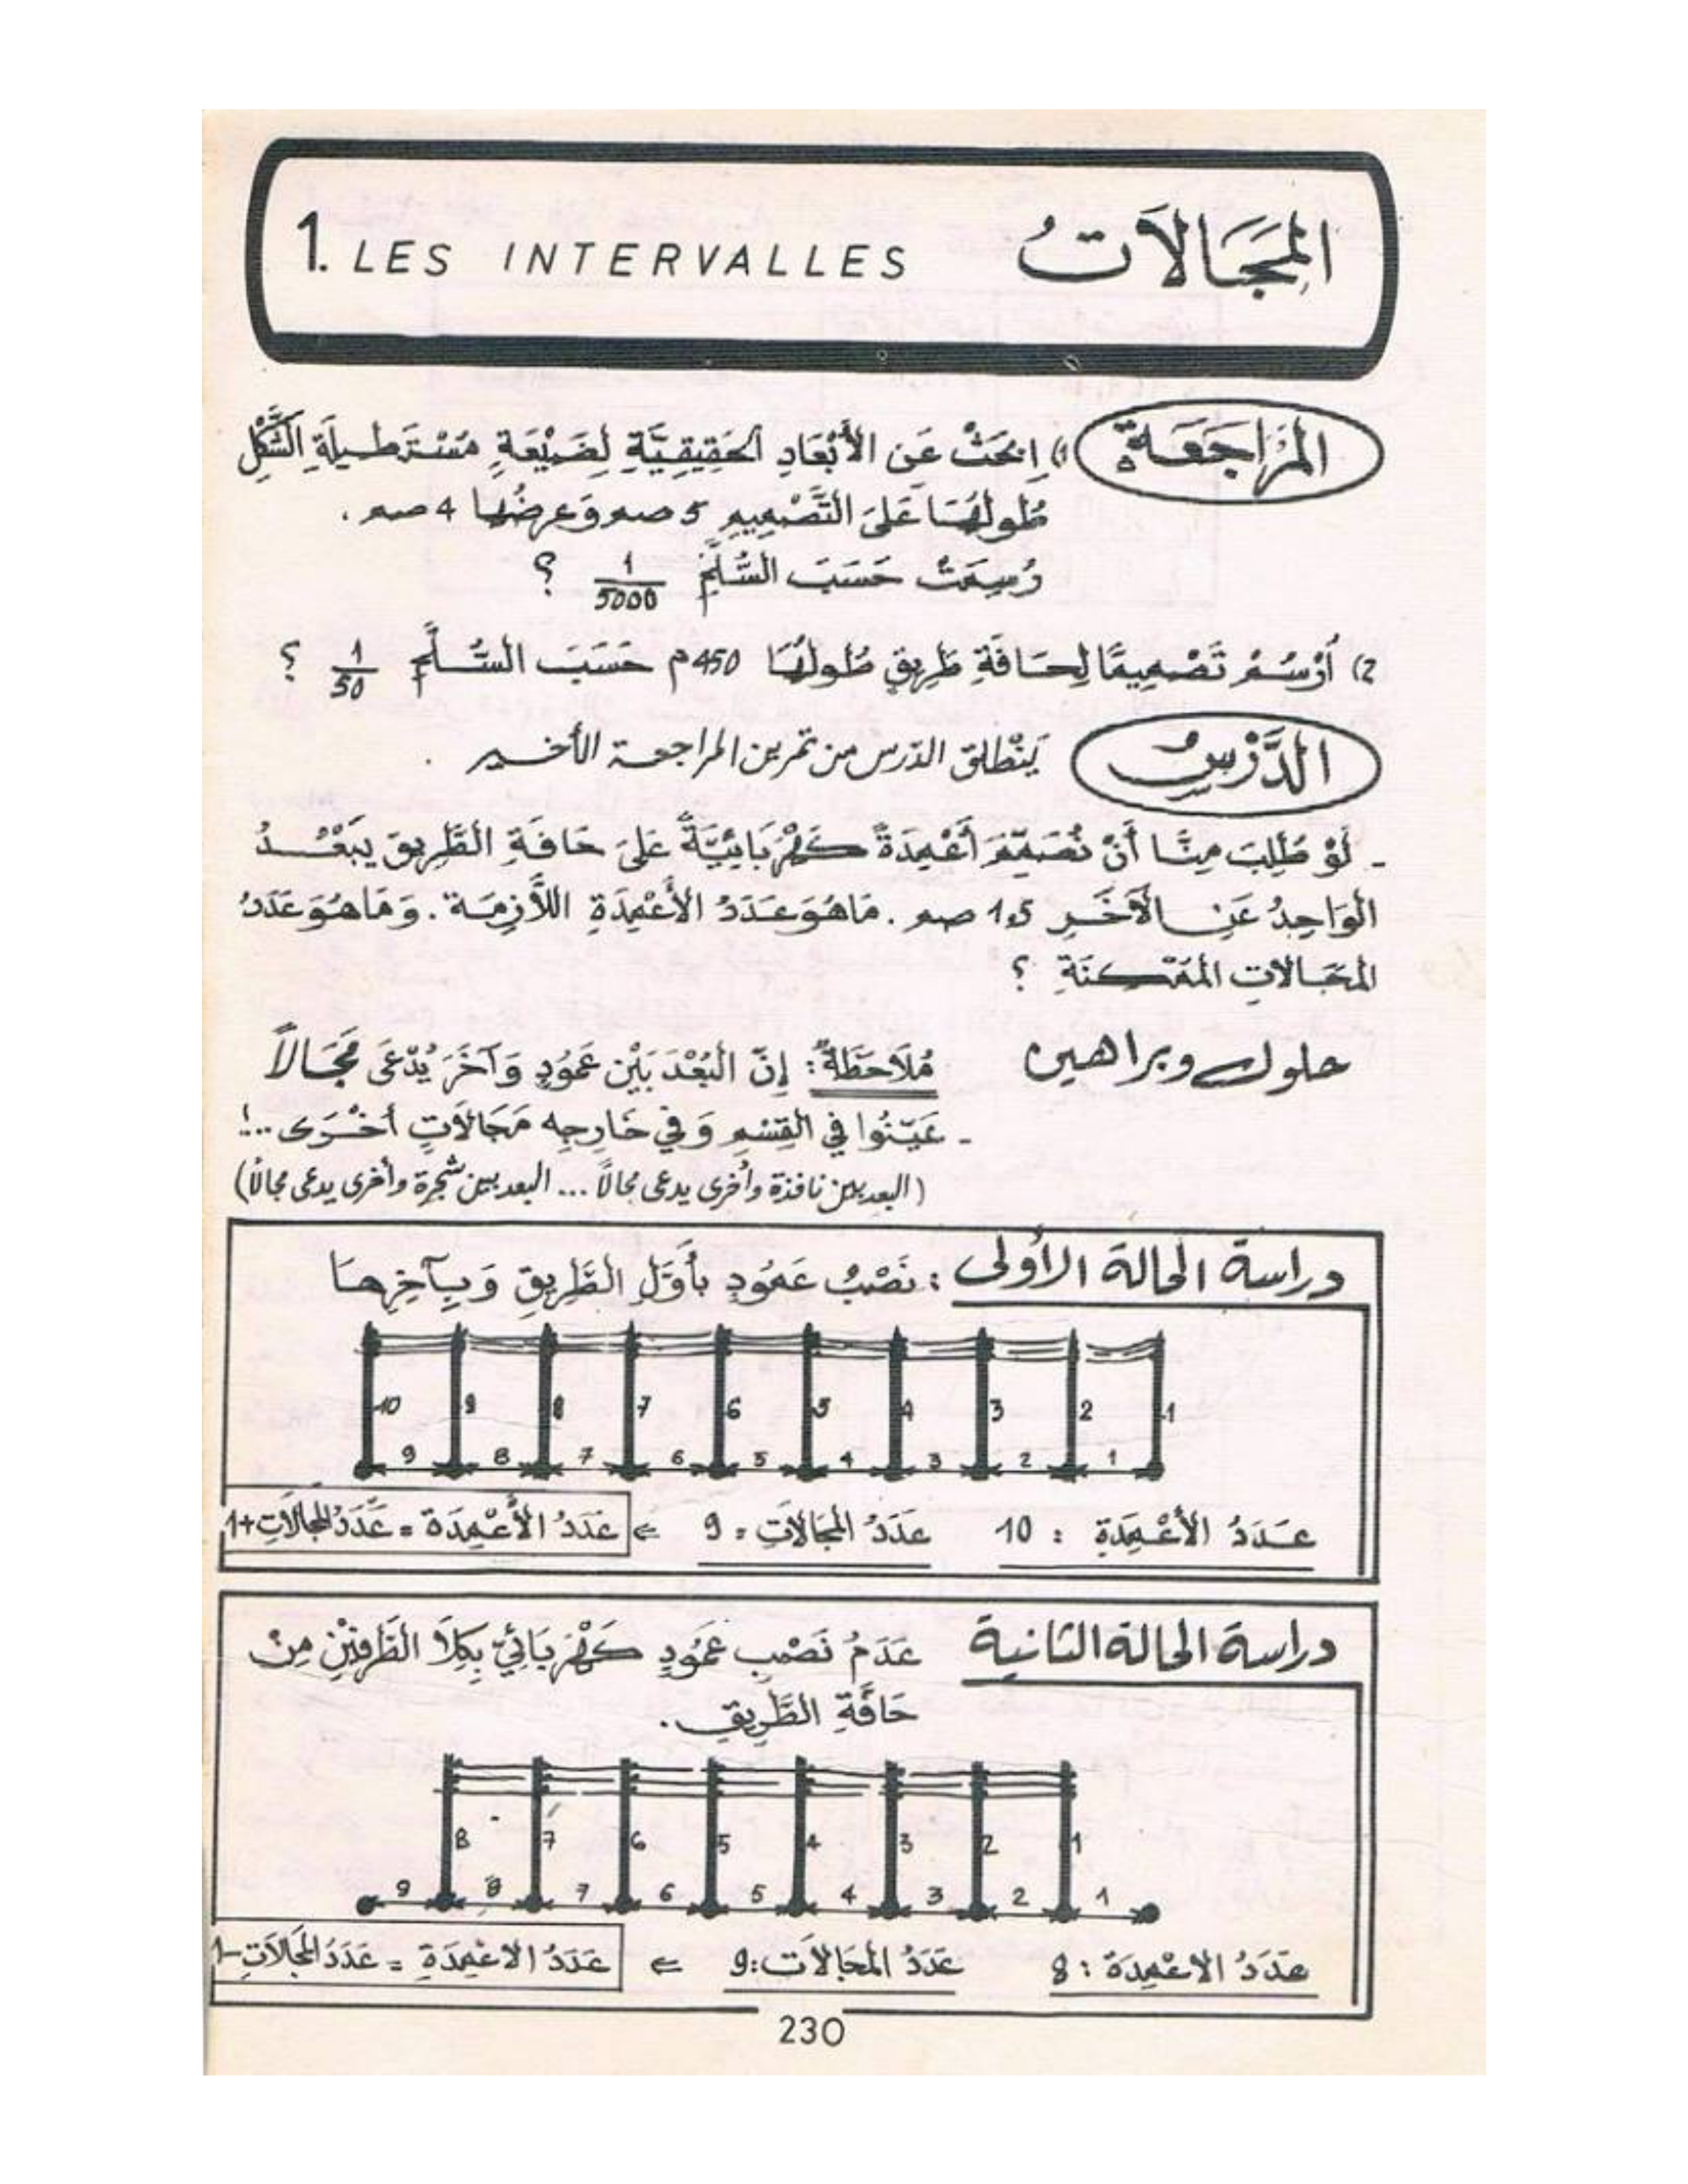 1. LES INTERVALLES المَجَالاَتُ
المُرَاجَعَةُ 1) اِبْحَثْ عَنِ الأَبْعَادِ الحَقِيقِيَّةِ لِضَيْعَةٍ مُسْتَطِيلَةِ الشَّكْلِ
طُولُهَا عَلَى التَّصْمِيمِ 5 صم وَعرضُها 4 صم .
رُسِمَتْ حَسَبَ السُّلَّمِ 1/5000 ؟
2) أُرْسُمْ تَصْمِيمًا لِحَافَةِ طَرِيقٍ طُولُهَا 450 م حَسَبَ السُّلَّمِ 1/50 ؟
الدَّرْسُ يَنْطلق الدّرس من تمرين المراجعة الأخير .
- لَوْ طُلِبَ مِنَّا أَنْ نُصَمِّمَ أَعْمِدَةً كَهْرَبَائِيَّةً عَلَى حَافَةِ الطَّرِيقِ يَبْعُدُ
الوَاحِدُ عَنِ الآخَرِ 1,5 صم . مَا هُوَ عَدَدُ الأَعْمِدَةِ اللاَّزِمَة . وَ مَا هُوَ عَدَدُ
المَجَالاتِ المُمْكِنَةِ ؟
حلول وبراهين مُلاَحَظَةٌ : إِنّ البُعْدَ بَيْن عَمُودٍ وَآخَرَ يُدْعَى مَجَالاً
- عَيِّنُوا فِي القِسْمِ وَ فِي خَارِجِهِ مَجَالاَتٍ أخْرَى ...!
( البعد بين نافذة وأخرى يدعى مجالاً ... البعد بين شجرة وأخرى يدعى مجالاً )
دراسة الحالة الأولى : نَصْبُ عَمُودٍ بأَوَّلِ الطَّرِيقِ وَ بِآخِرِهَا
10 9 8 7 6 5 4 3 2 1
9 8 7 6 5 4 3 2 1
عَدَدُ الأَعْمِدَةِ : 10 عدَدُ المَجَالاَتِ = 9 ⇐ عَدَدُ الأَعْمِدَة = عَدَدُ المجالاَتِ + 1
دراسة الحالة الثانية عَدَمُ نَصْبِ عَمُودٍ كَهْرَبَائِيّ بِكِلاَ الطَّرفَيْنِ مِنْ
حَافَّةِ الطَّرِيقِ .
8 7 6 5 4 3 2 1
9 8 7 6 5 4 3 2 1
عَدَدُ الاعْمِدَة : 8 عَدَدُ المَجَالاَت : 9 ⇐ عَدَدُ الاعْمِدَةِ = عَدَدُ المَجَالاَتِ - 1
230